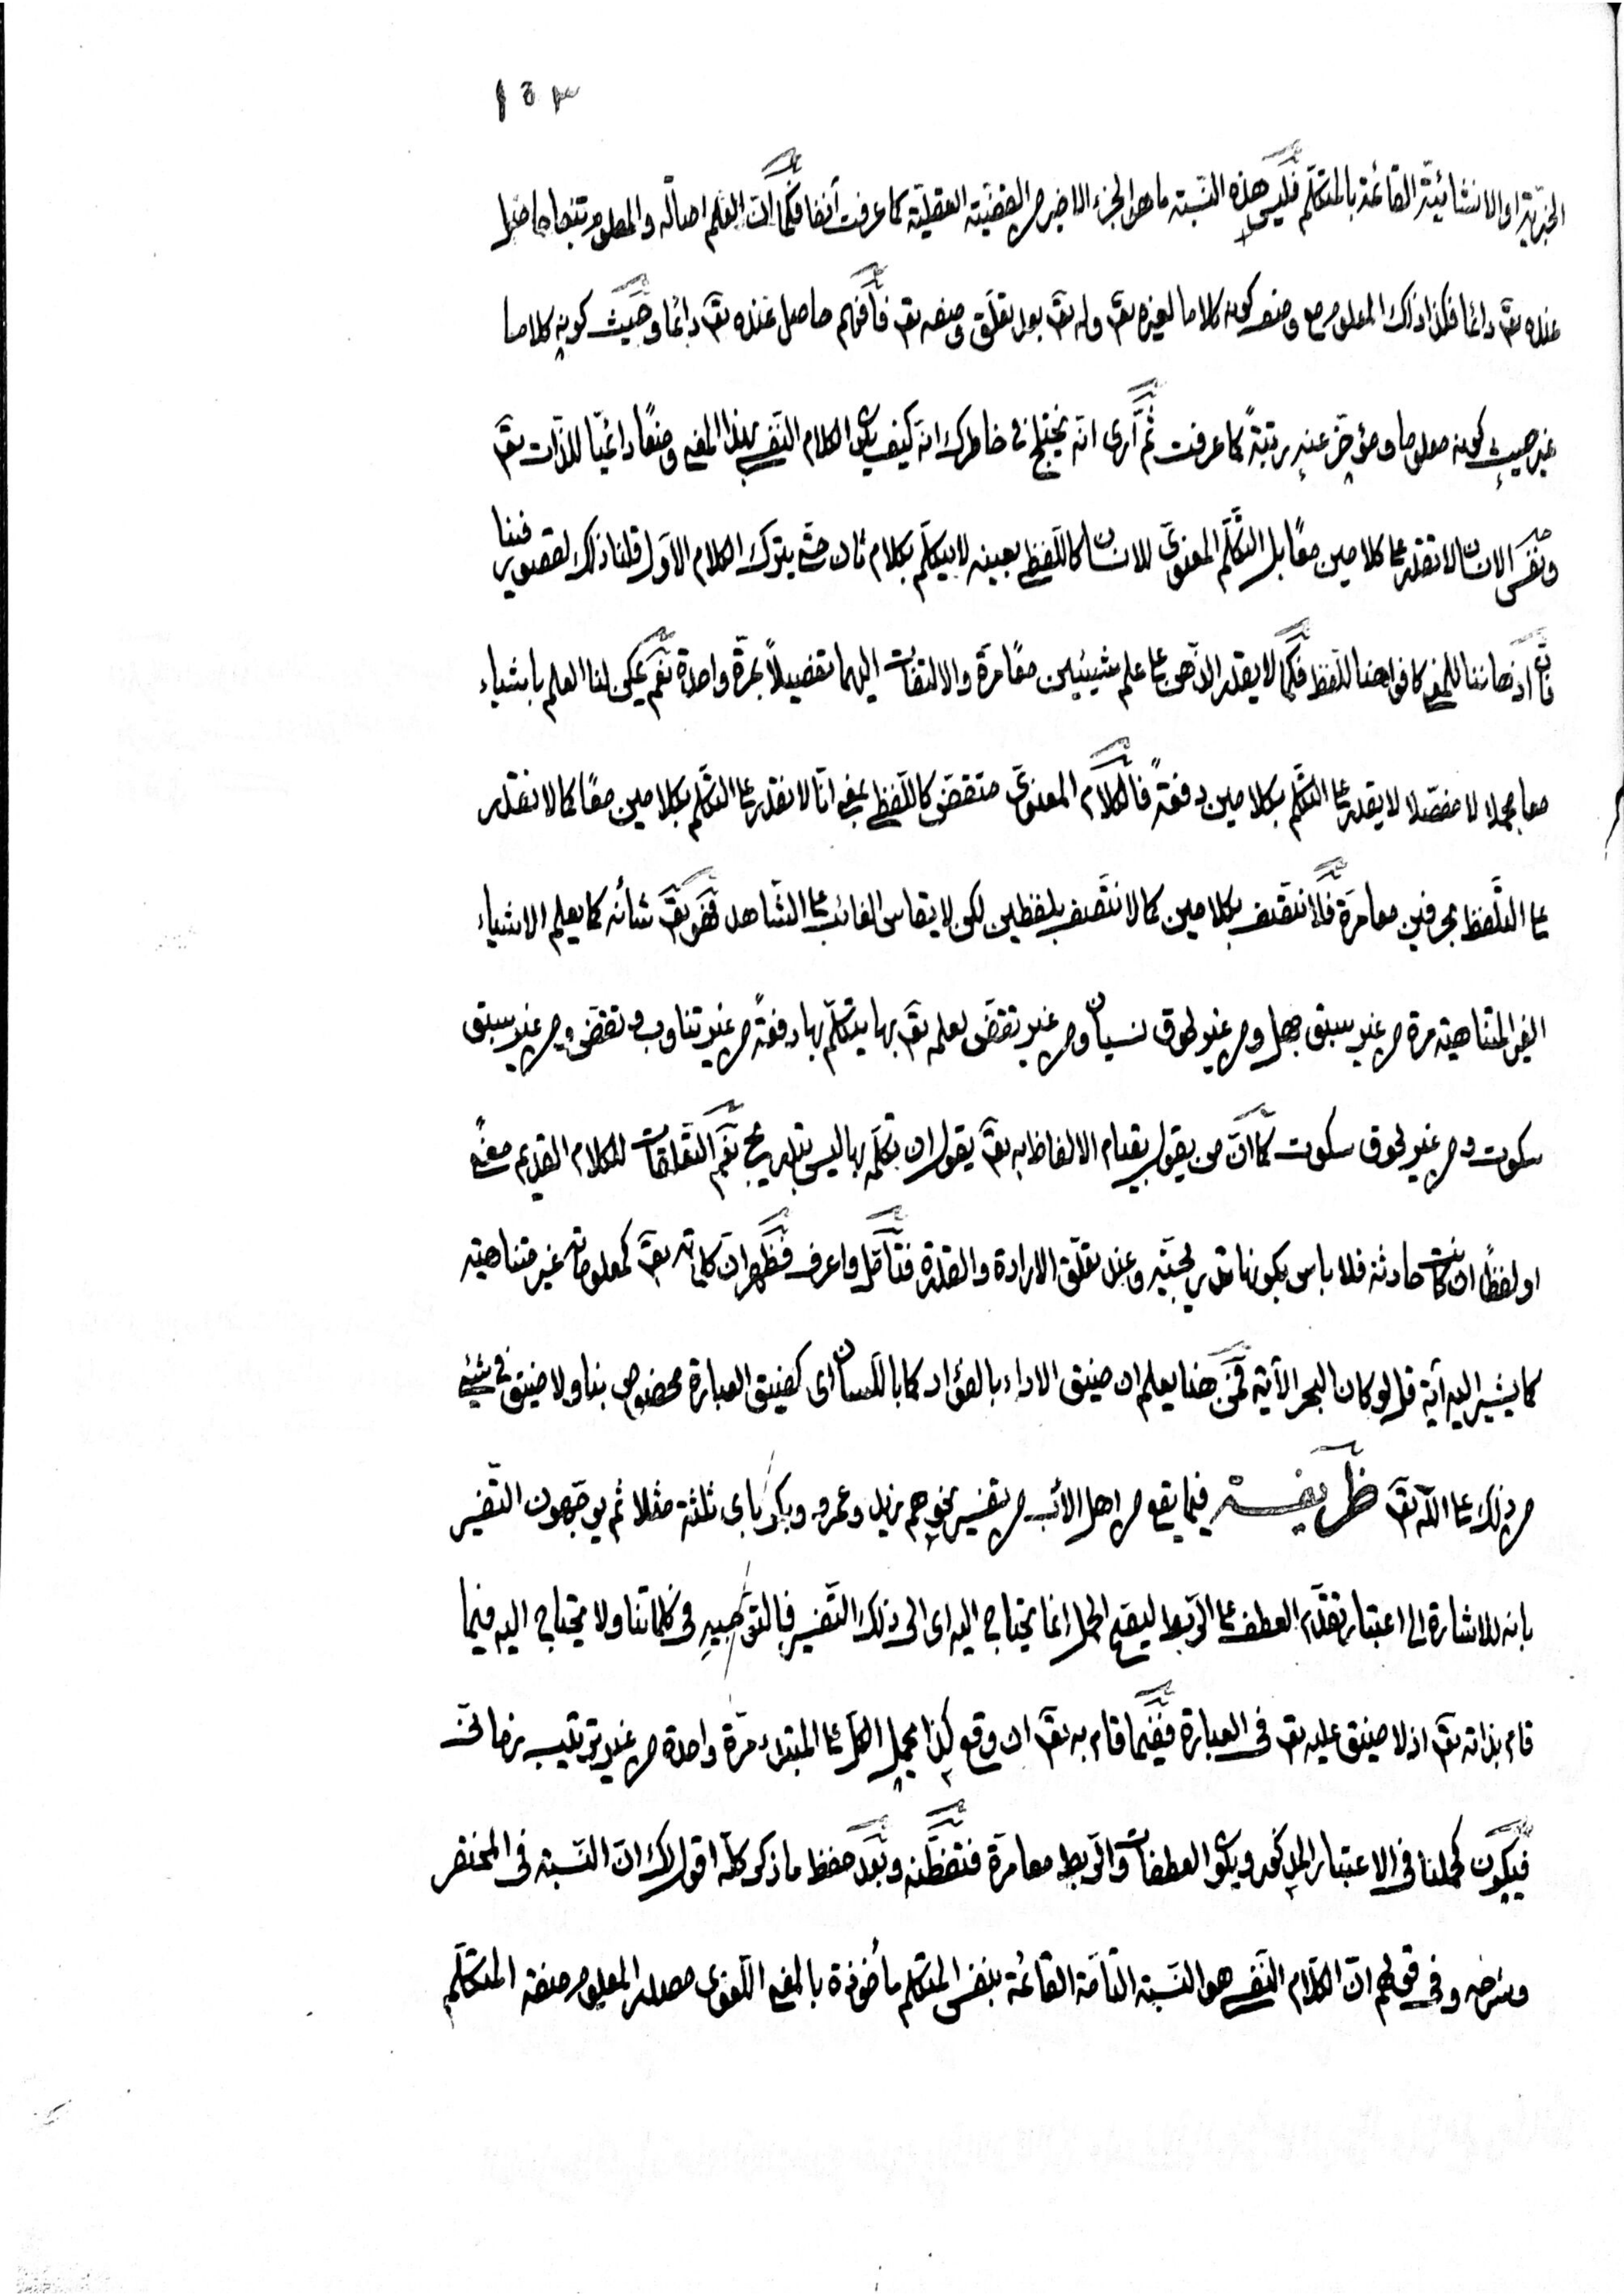 ١٥٣
الخبريّة او الانشائيّة القائمة بالمتكلّم فليس هذه النّسبة ما هو الجزء الاخير من القضيّة العقليّة كما عرفت آنفا فكما انّ العلم اصالة والمعلوم تبعا حاصل
عنده تعٓ دائما فكذا ذاك المعلوم مع وصف كونه كلاما لغيره تعٓ وله تعٓ بعد تعلّق وصفه تعٓ فافهم حاصل عنده تعٓ دائما وحيث كونه كلاما
غير حيث كونه معلوما ومؤخّر عنه رتبةً كما عرفت ثمّ ارى انّه يختلج في خاطرك انّه كيف يكون الكلام النّفسي بهذا المعنى وصفًا دائميّا للذّات تعٓ
ونفس الانسان لا تقدر على كلامين معًا بل التّكلّم المعنويّ للانسان كاللّفظي بعينه لا يتكلّم بكلام ثان حتّى يترك الكلام الاوّل قلنا ذلك لقصور فينا
فانّ اذهاننا للمعنى كافواهنا للّفظ فكما لا يقدر الذّهن على علم شيئين معًا مرّة والالتفات اليهما تفصيلاً بمرّة واحدة نعم يمكن لنا العلم باشياء
معا مجملا لا مفصّلا لا يقدر على التكلّم بكلامين دفعةً فالكلام المعنويّ متقضّ كاللّفظي بمعنى انّا لا نقدر على التّكلّم بكلامين معًا كما لا نقدر
على التلّفظ بحرفين معا مرّة فلا نتّصف بكلامين كما لا نتّصف بلفظين لكن لا يقاس الغائب على الشّاهد فهو تعٓ شأنه كما يعلم الاشياء
الغير المتناهية مرة من غير سبق جهل ومن غير لحوق نسيان ومن غير تقضّ لعلمه تعٓ بها يتكلّم بها دفعةً من غير تناوب وتقضّ ومن غير سبق
سكوت ومن غير لحوق سكوت كما انّ من يقول بقيام الالفاظ به تعٓ يقول ان تكلّمه بها ليس بتدريج نعم التّعلّقات للكلام القديم معنىً
او لفظًا ان كانت حادثة فلا باس بكونها تدريجيّة وعند تعلّق الارادة والقدرة فتأمّل واعرف فظهر انّ كلماته تعٓ كمعلوماته غير متناهية
كما يشير اليه آية قل لو كان البحر الآية فمن هنا يعلم ان ضيق الاداء بالفؤاد كما باللّسان اى كضيق العبارة مخصوص بنا ولا ضيق في شيئ
من ذلك على اللّه تعٓ ظريفة فيما يقع من اهل الأدب من تفسير نحو هم زيد وعمرو وبكر باى ثلثة مثلا ثم يوجّهون التّفسير
بانه للاشارة الى اعتبار تقدّم العطف على الرّبط ليصحّ الحمل انما يحتاج اليه اى الى ذلك التّفسير فالتّوجيه في كلماتنا ولا يحتاج اليه فيما
قام بذاته تعٓ اذ لا ضيق عليه تعٓ فى العبارة ففيما قام به تعٓ ان وقع كذا يحمل الكلّ على المبتداء مرّة واحدة من غير ترتيب زمانيّ
فيكون كحملنا فى الاعتبار المذكور ويكون العطفات والرّبط معا مرّة فتفطّنه وبعد حفظ ما ذكر كلّه اقول لك انّ النّسبة فى المختصر
وشرحه وفى قولهم انّ الكلام النّفسي هو النّسبة التامّة القائمة بنفس المتكلّم مأخوذة بالمعنى اللّغوى مصدر المعلوم صفة المتكلّم